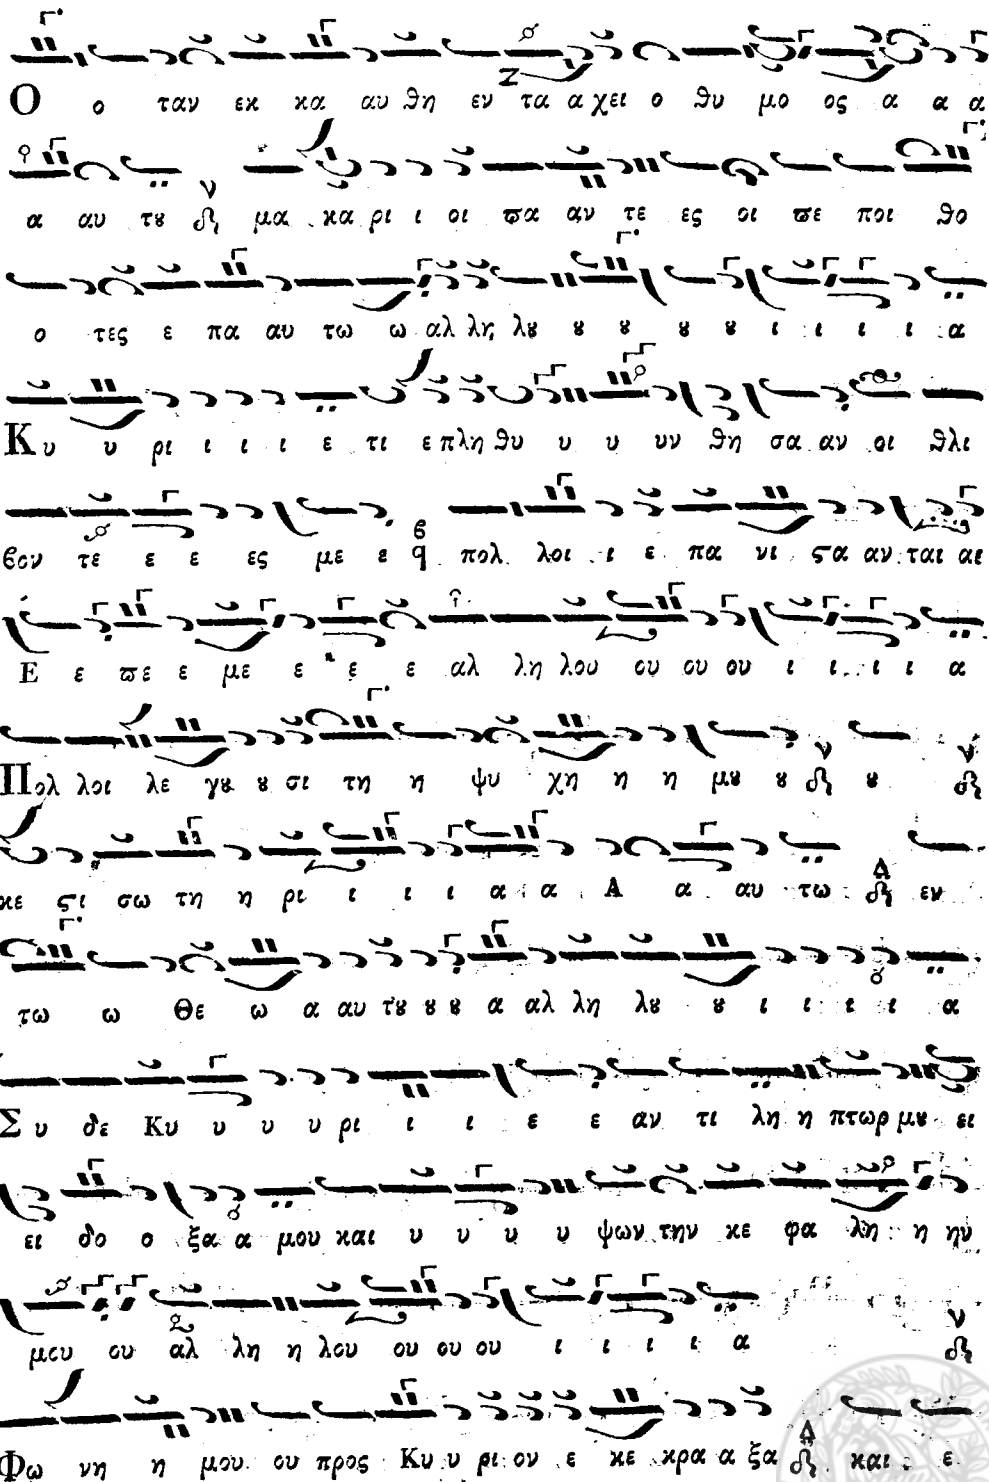 Ο ο ταν εκ κα αυ θη εν τα α χει ο θυ μο ος α α α
α αυ τȣ μα κα ρι ι οι ϖα αν τε ες οι ϖε ποι θο
ο τες ε πα αυ τω ω αλ λη λȣ ȣ ȣ ȣ ȣ ι ι ι ι α
Κυ υ ρι ι ι ι ε τι ε πλη θυ υ υ υν θη σα αν οι θλι
βον τε ε ε ες με ε πολ λοι ι ε πα νι ϛα αν ται αι
Ε ε ϖε ε με ε ε ε αλ λη λου ου ου ου ι ι ι ι α
Πολ λοι λε γȣ ȣ σι τη η ψυ χη η η μȣ ȣ ȣ
κε ϛι σω τη η ρι ι ι ι α α Α α αυ τω εν
τω ω Θε ω α αυ τȣ ȣ ȣ α αλ λη λȣ ȣ ι ι ι ι α
Συ δε Κυ υ υ υ ρι ι ι ε ε αν τι λη η πτωρ μȣ ει
ει δο ο ξα α μου και υ υ υ υ ψων την κε φα λη η ην
μου ου αλ λη η λου ου ου ου ι ι ι ι α
Φω νη η μου ου προς Κυ υ υ ρι ον ε κε κρα α ξα και ε